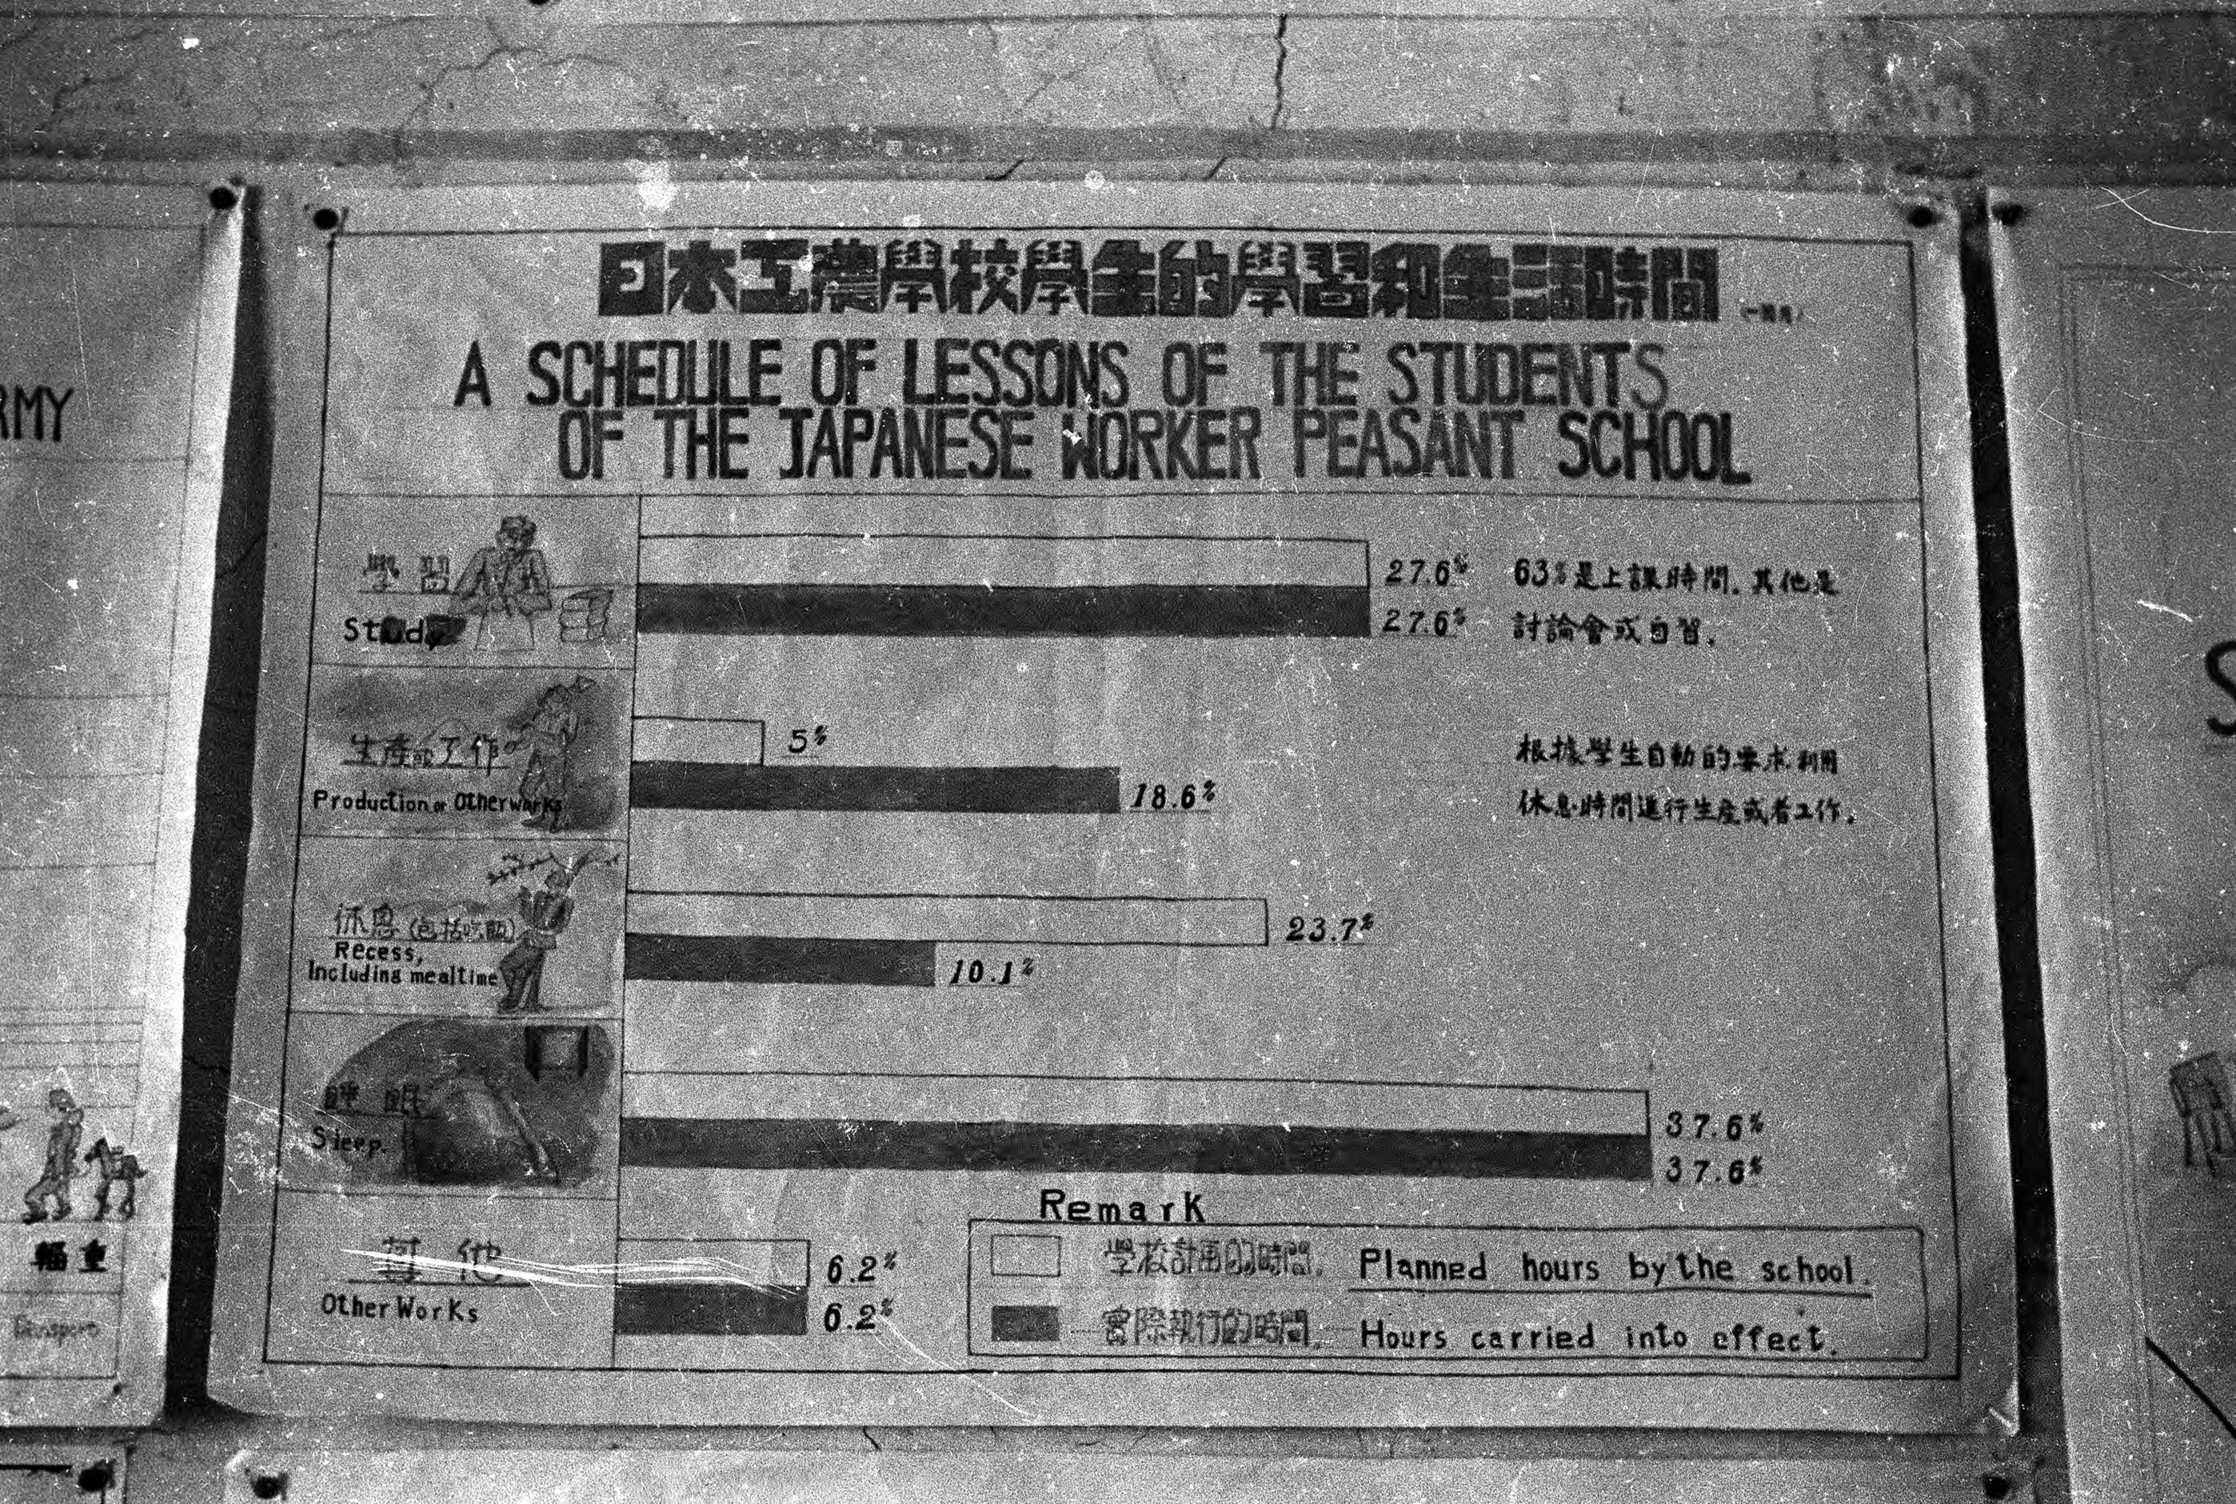 日本工農學校學生的學習和生活時間
A SCHEDULE OF LESSONS OF THE STUDENTS
OF THE JAPANESE WORKER PEASANT SCHOOL
學習
Study
27.6%
27.6%
63%是上課時間.其他是
討論會或自習.
生產或工作
Production or Other works
5%
18.6%
根據學生自動的要求利用
休息時間進行生產或者工作.
休息(包括吃飯)
Recess,
Including mealtime
23.7%
10.1%
睡眠
Sleep.
37.6%
37.6%
其他
Other Works
6.2%
6.2%
Remark
學校計画的時間. Planned hours by the school.
實際執行的時間. Hours carried into effect.
RMY
輜重
Transport
S